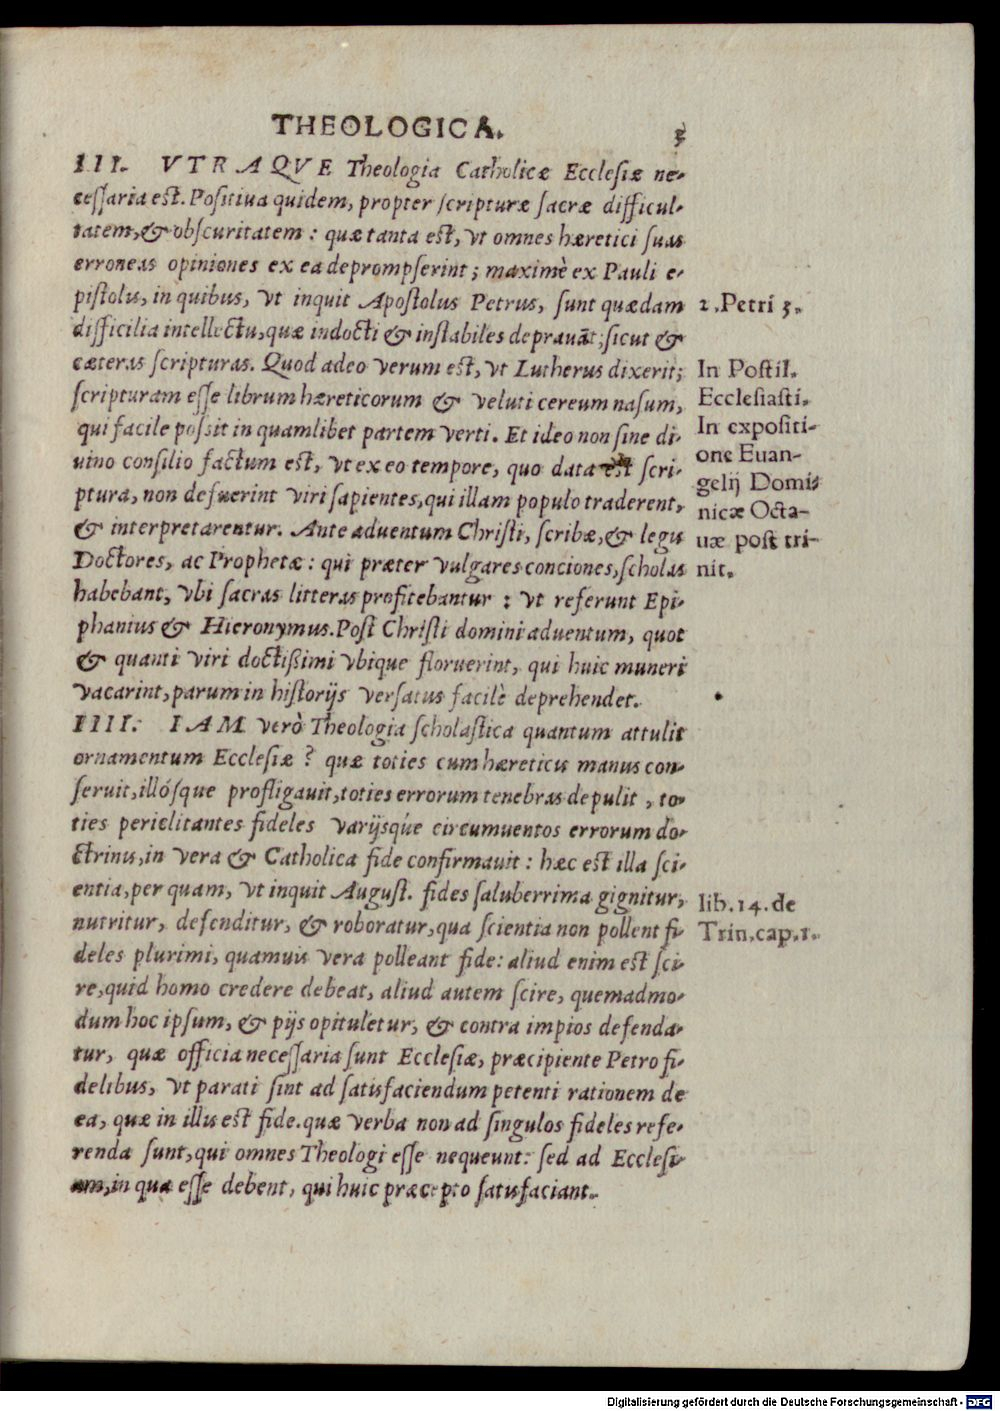 THEOLOGICA. 3
III. VTRAQVE Theologia Catholicæ Ecclesiæ ne-
cessaria est. Positiua quidem, propter scripturæ sacræ difficul-
tatem, & obscuritatem : quæ tanta est, vt omnes hæretici suas
erroneas opiniones ex ea deprompserint ; maximè ex Pauli e-
pistolis, in quibus, vt inquit Apostolus Petrus, sunt quædam
2. Petri 3.
difficilia intellectu, quæ indocti & instabiles deprauāt ; sicut &
cæteras scripturas. Quod adeo verum est, vt Lutherus dixerit ;
scripturam esse librum hæreticorum & veluti cereum nasum,
qui facile possit in quamlibet partem verti. Et ideo non sine di-
uino consilio factum est, vt ex eo tempore, quo data est scri-
ptura, non defuerint viri sapientes, qui illam populo traderent,
& interpretarentur. Ante aduentum Christi, scribæ, & legis
Doctores, ac Prophetæ : qui præter vulgares conciones, scholas
In Postil.
Ecclesiasti.
In expositi-
one Euan-
gelij Domi-
nicæ Octa-
uæ post tri-
nit.
habebant, vbi sacras litteras profitebantur : vt referunt Epi-
phanius & Hieronymus. Post Christi domini aduentum, quot
& quanti viri doctissimi vbique floruerint, qui huic muneri
vacarint, parum in historijs versatus facilè deprehendet.
IIII. IAM verò Theologia scholastica quantum attulit
ornamentum Ecclesiæ ? quæ toties cum hæreticis manus con-
seruit, illósque profligauit, toties errorum tenebras depulit, to-
ties periclitantes fideles varijsque circumuentos errorum do-
ctrinis, in vera & Catholica fide confirmauit : hæc est illa sci-
entia, per quam, vt inquit August. fides saluberrima gignitur,
nutritur, defenditur, & roboratur, qua scientia non pollent fi-
lib. 14. de
Trin. cap. 1.
deles plurimi, quamuis vera polleant fide : aliud enim est sci-
re, quid homo credere debeat, aliud autem scire, quemadmo-
dum hoc ipsum, & pijs opituletur, & contra impios defenda-
tur, quæ officia necessaria sunt Ecclesiæ, præcipiente Petro fi-
delibus, vt parati sint ad satisfaciendum petenti rationem de
ea, quæ in illis est fide. quæ verba non ad singulos fideles refe-
renda sunt, qui omnes Theologi esse nequeunt : sed ad Ecclesi-
am, in qua esse debent, qui huic præcepto satisfaciant.
Digitalisierung gefördert durch die Deutsche Forschungsgemeinschaft - DFG